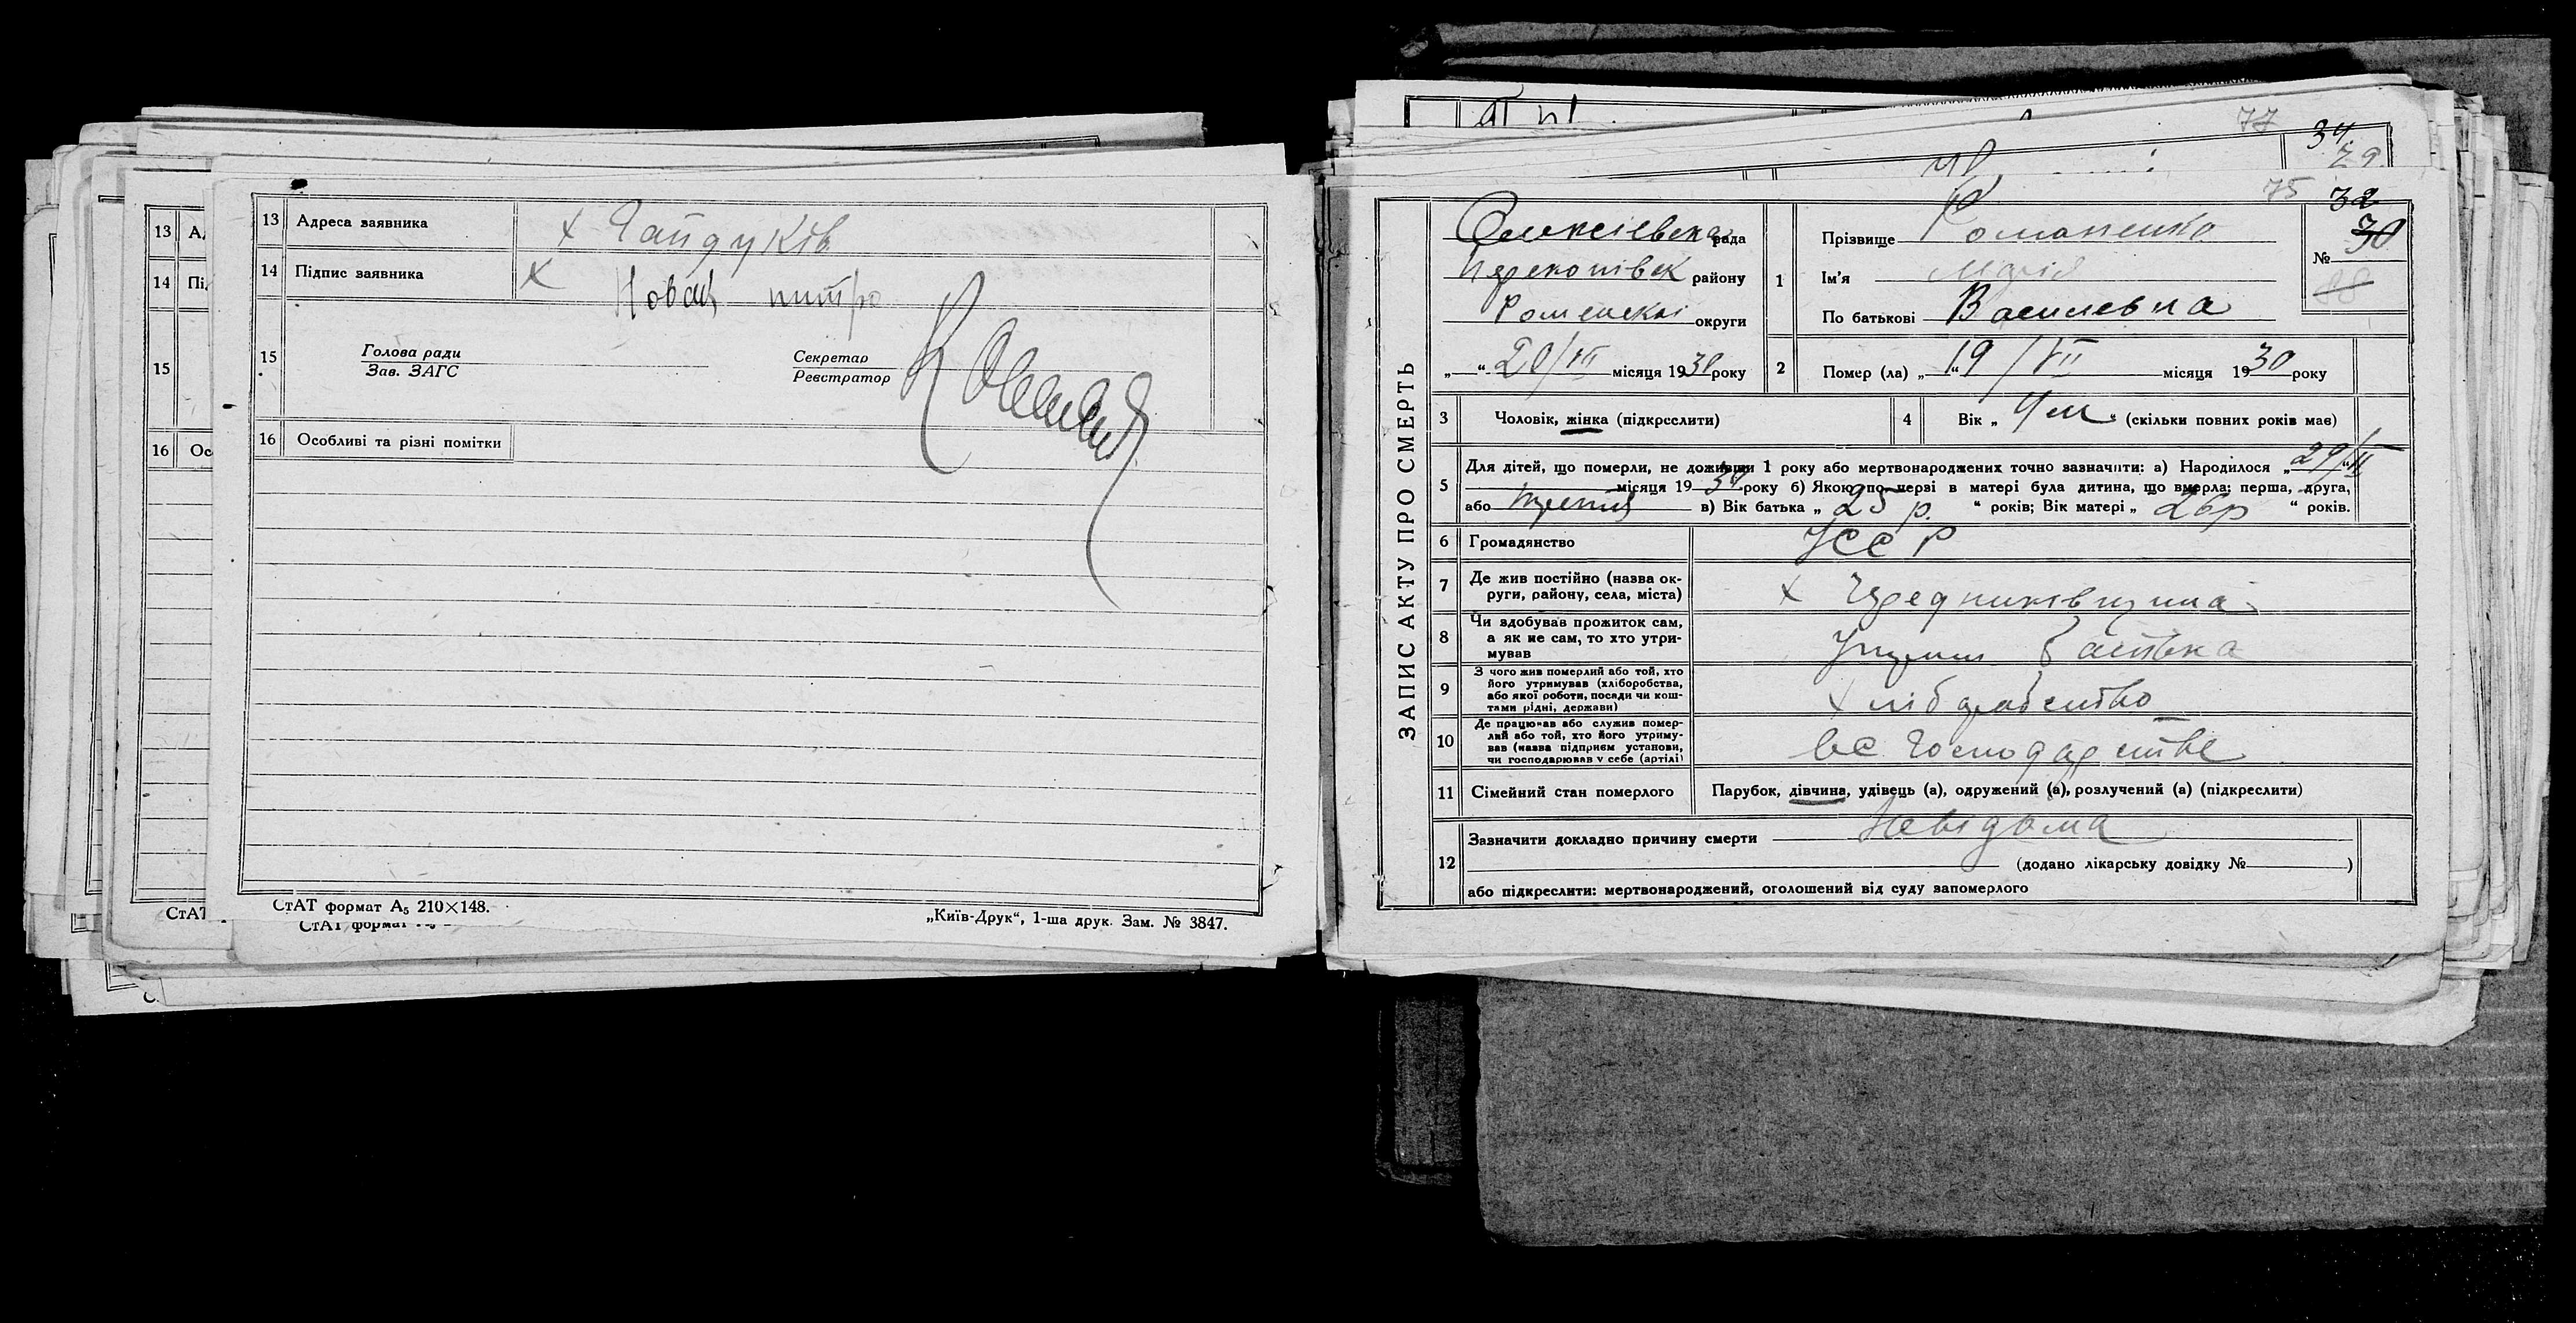 13 Адреса заявника х Гайдуків
14 Підпис заявника х Новак
15 Голова ради
Зав. ЗАГС
Секретар
Реєстратор
16 Особливі та різні помітки
СтАТ формат А₅ 210×148.
„Київ-Друк“, 1-ша друк. Зам. № 3847.
13
14
15
16 Ос
СтАТ
77
34
79
75 32
30
№
88
ЗАПИС АКТУ ПРО СМЕРТЬ
Олексіевска рада
району
Роменскої округи
„ “ 20/VII місяця 1930 року
1 Прізвище Романенко
Ім'я Марія
По батькові Василевна
2 Помер (ла) „19“ /VII місяця 1930 року
3 Чоловік, жінка (підкреслити)
4 Вік „ 4 м “ (скільки повних років має)
5 Для дітей, що померли, не доживши 1 року або мертвонароджених точно зазначити: а) Народилося „29/“
місяця 1930 року б) Якою по черзі в матері була дитина, що вмерла: перша, друга,
або третя в) Вік батька „ 25 р. “ років; Вік матері „ 26 р “ років.
6 Громадянство УССР
7 Де жив постійно (назва округи, району, села, міста) х Чередниківщина
8 Чи здобував прожиток сам,
а як не сам, то хто утримував
батька
9 З чого жив померлий або той, хто
його утримував (хліборобства,
або якої роботи, посади чи коштами рідні, держави)
10 Де працював або служив померлий або той, хто його утримував (назва підприєм установи,
чи господарював у себе (артілі)
господарстве
11 Сімейний стан померлого Парубок, дівчина, удівець (а), одружений (а), розлучений (а) (підкреслити)
12 Зазначити докладно причину смерти Невідома
(додано лікарську довідку № )
або підкреслити: мертвонароджений, оголошений від суду запомерлого